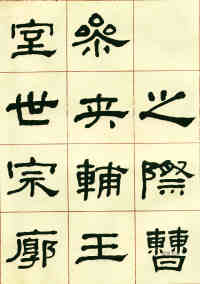 之際曹
參夾輔王
室世宗廓